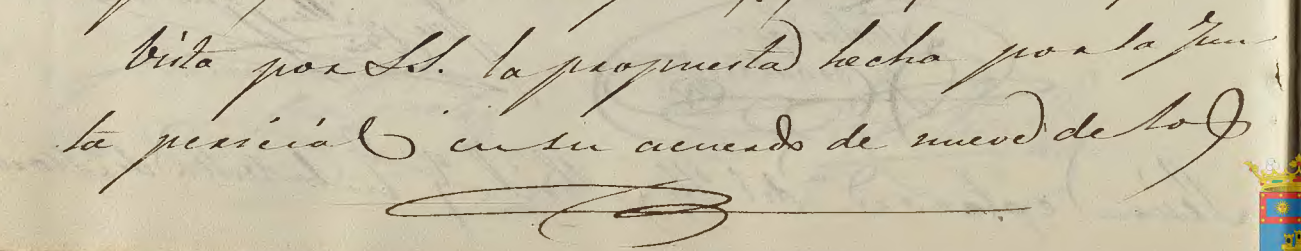 Vista por SS. la propuesta hecha por la Jun
ta pericial en su acuerdo de nueve de los